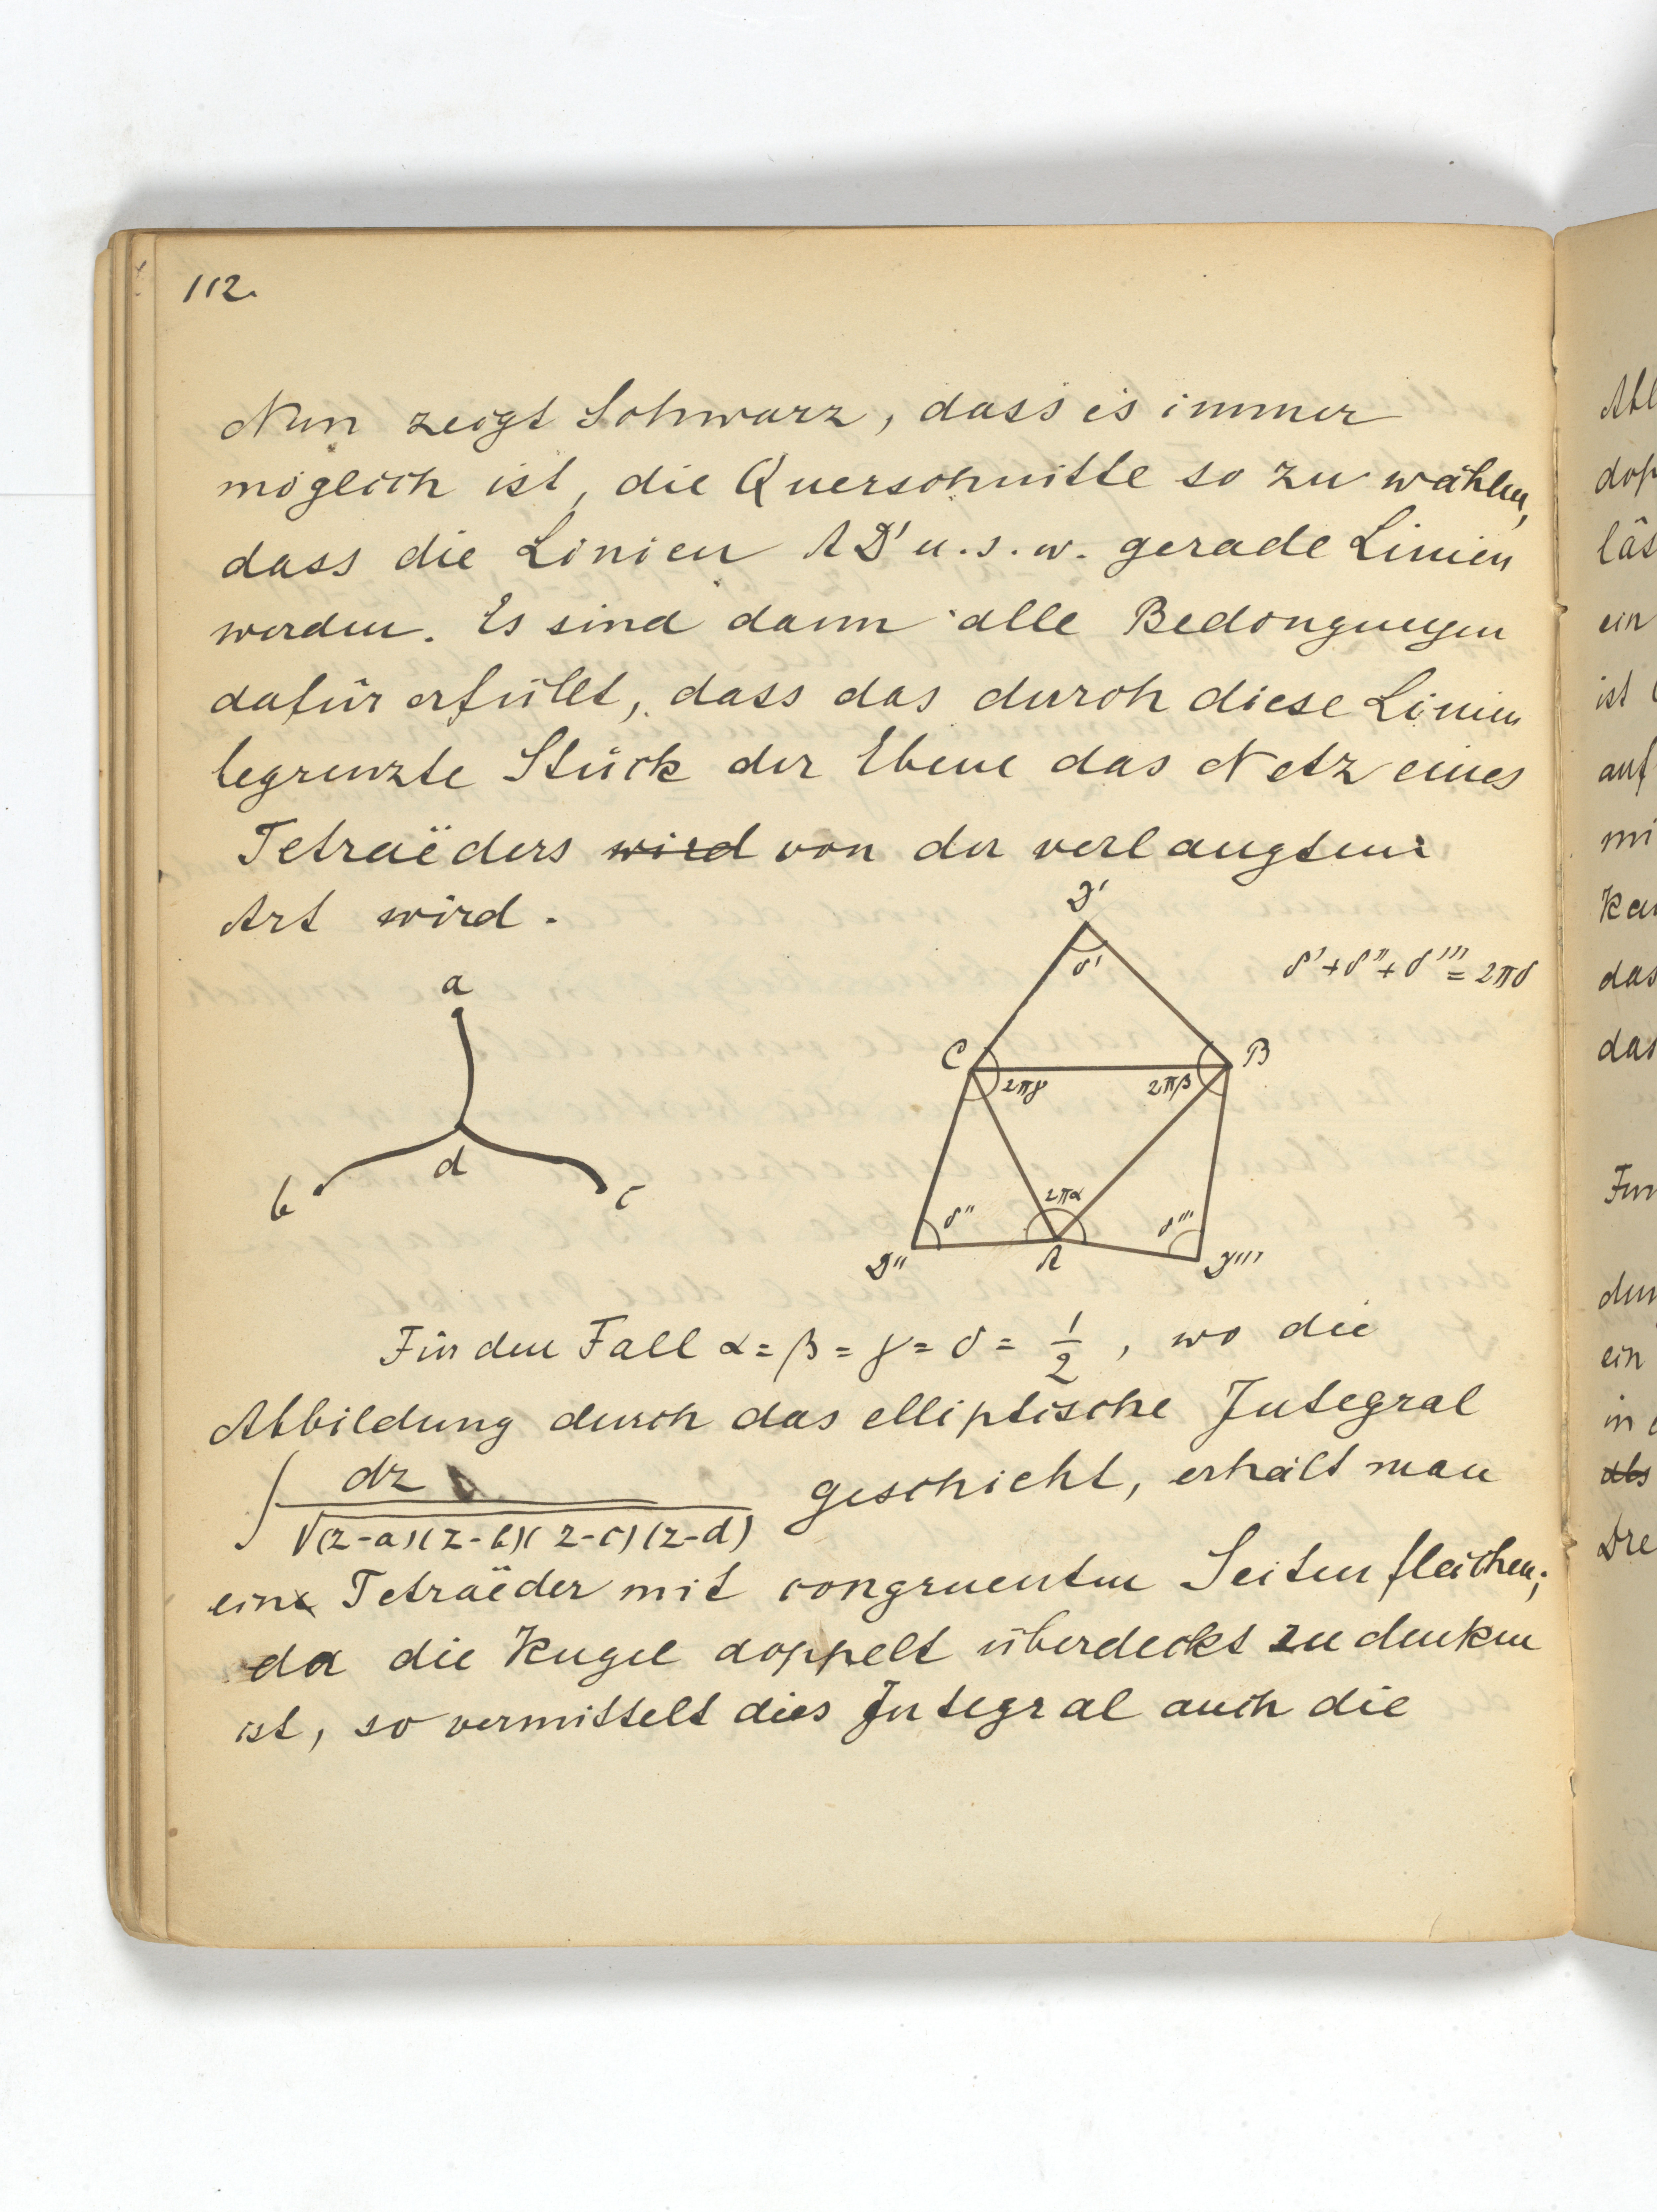 112.
Nun zeigt Schwarz, dass es immer
möglich ist, die Querschnitte so zu wählen,
dass die Linien AD' u.s.w. gerade Linien
werden. Es sind dann alle Bedingungen
dafür erfüllt, dass das durch diese Linien
begrenzte Stück der Ebene das Netz eines
Tetraëders wird von der verlangten
Art wird.
D'
δ'
δ'+δ''+δ'''=2πδ
a
C
B
2πγ
2πβ
d
b
c
2πα
δ''
δ'''
D''
A
D'''
Für den Fall α=β=γ=δ= 1/2, wo die
Abbildung durch das elliptische Integral
∫ dz / √(z-a)(z-b)(z-c)(z-d) geschieht, erhält man
ein Tetraëder mit congruenten Seitenfleichen;
da die Kugel doppelt überdeckt zu denken
ist, so vermittelt dies Integral auch die